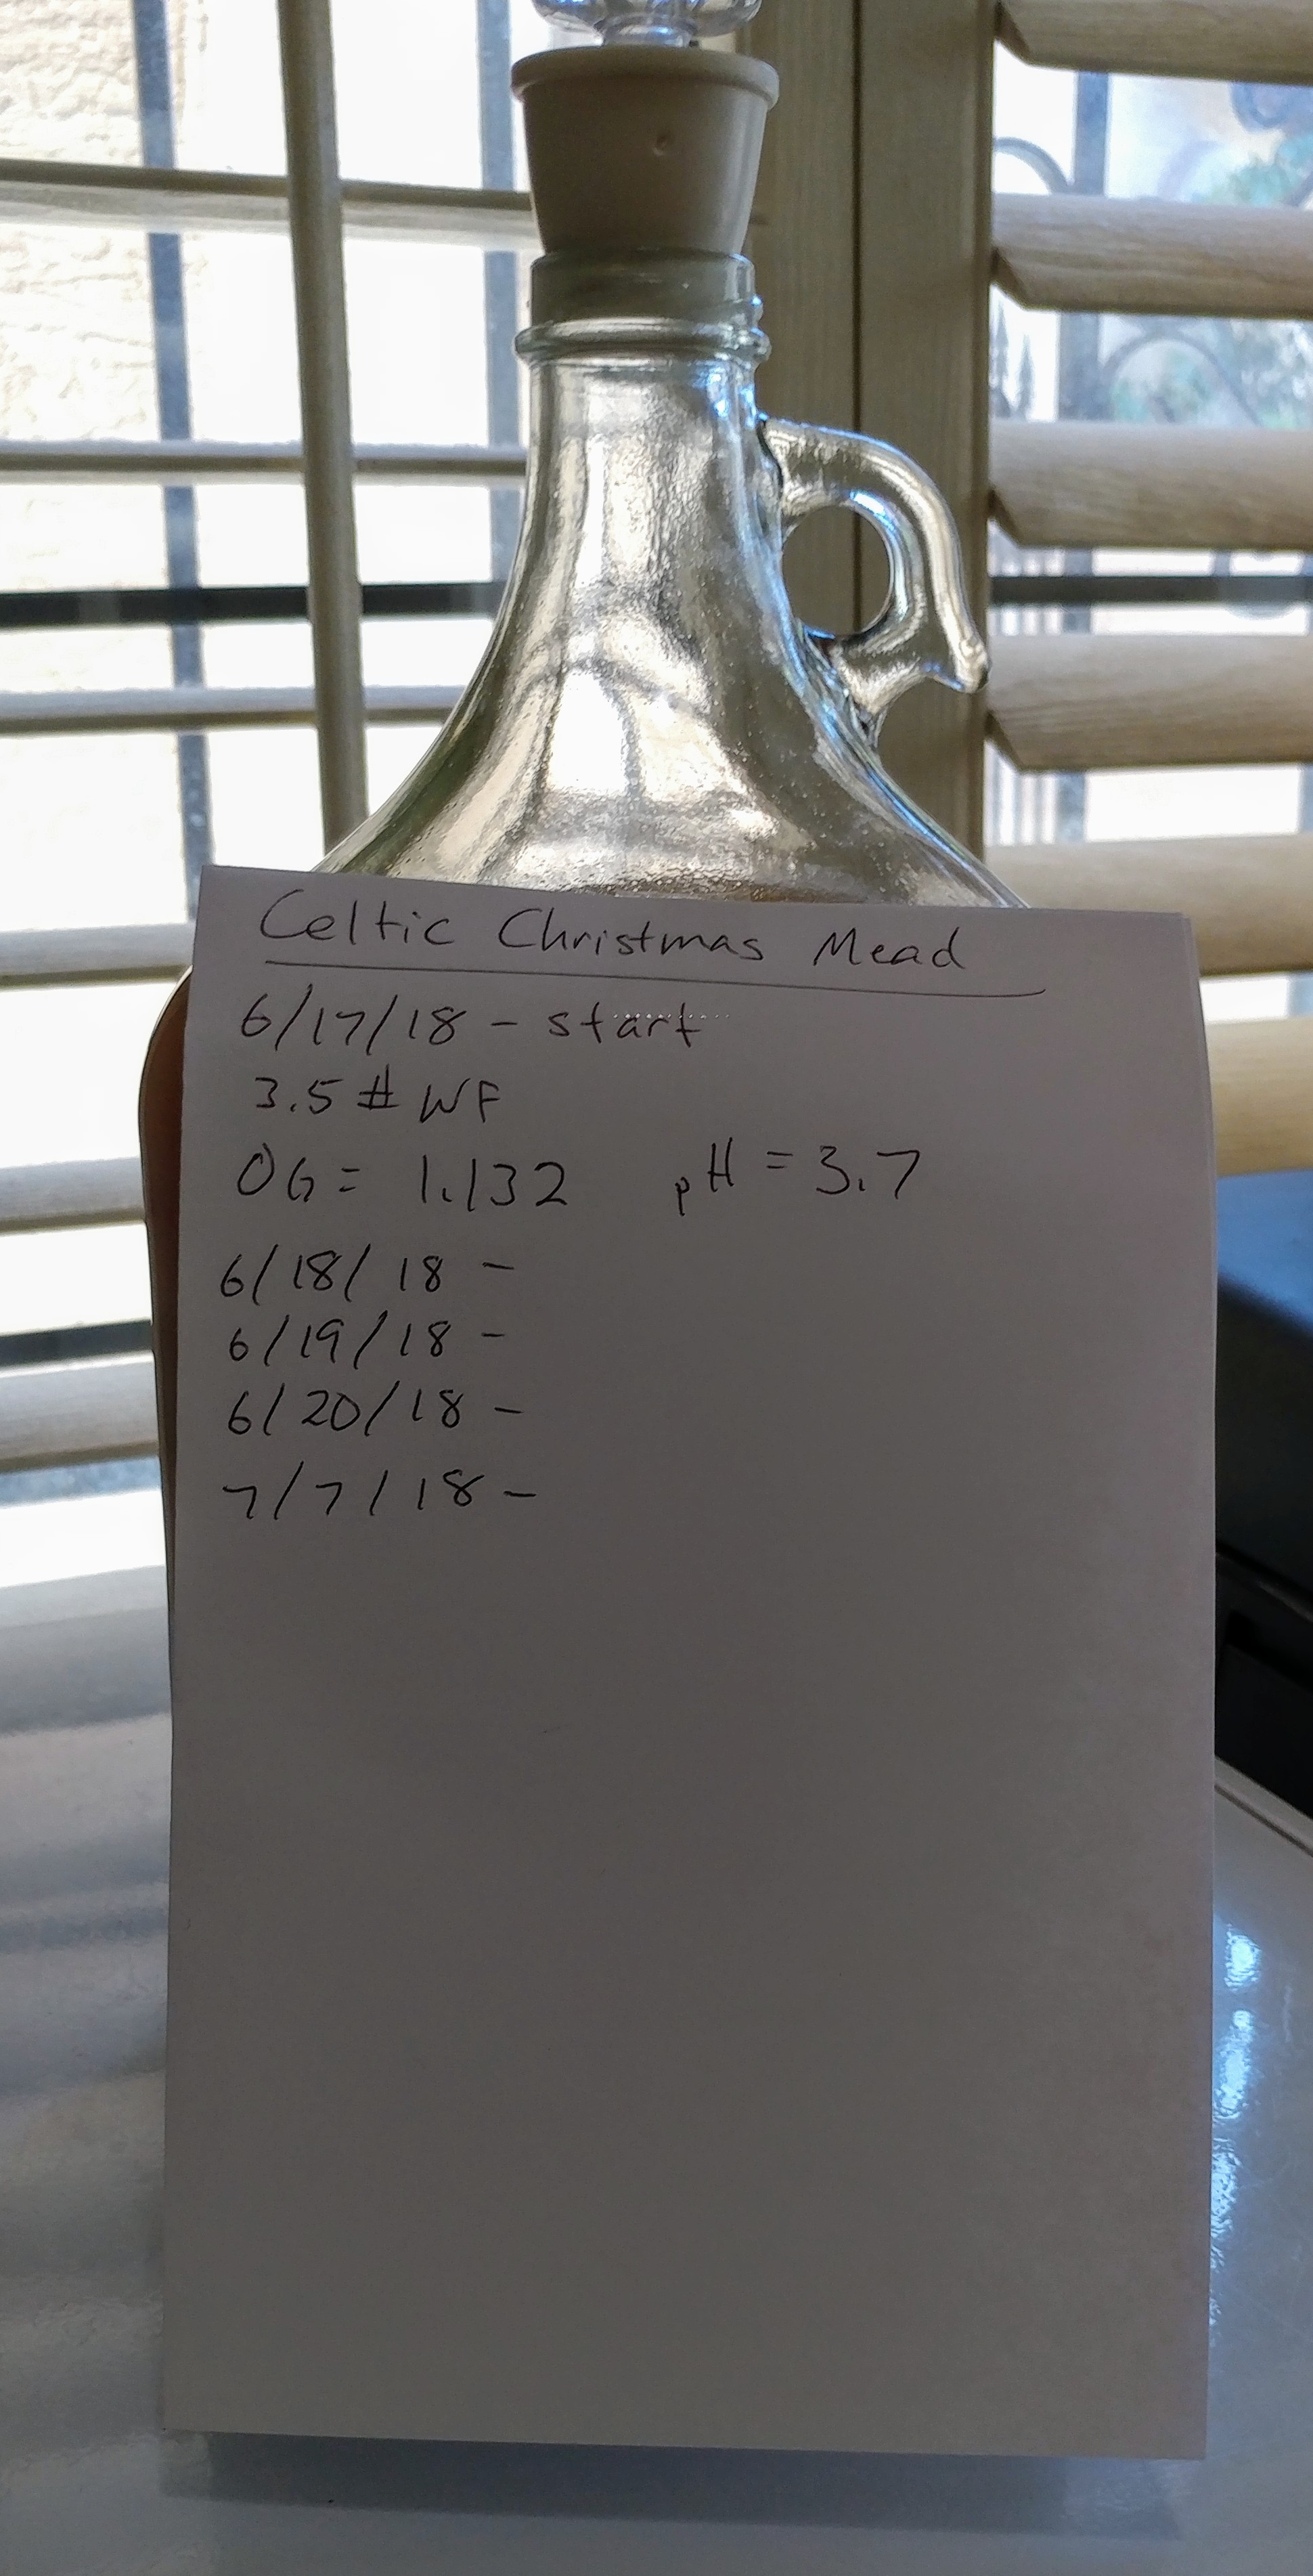 Celtic Christmas Mead
6/17/18 - start
3.5 # WF
OG = 1.132 pH = 3.7
6/18/18 -
6/19/18 -
6/20/18 -
7/7/18 -